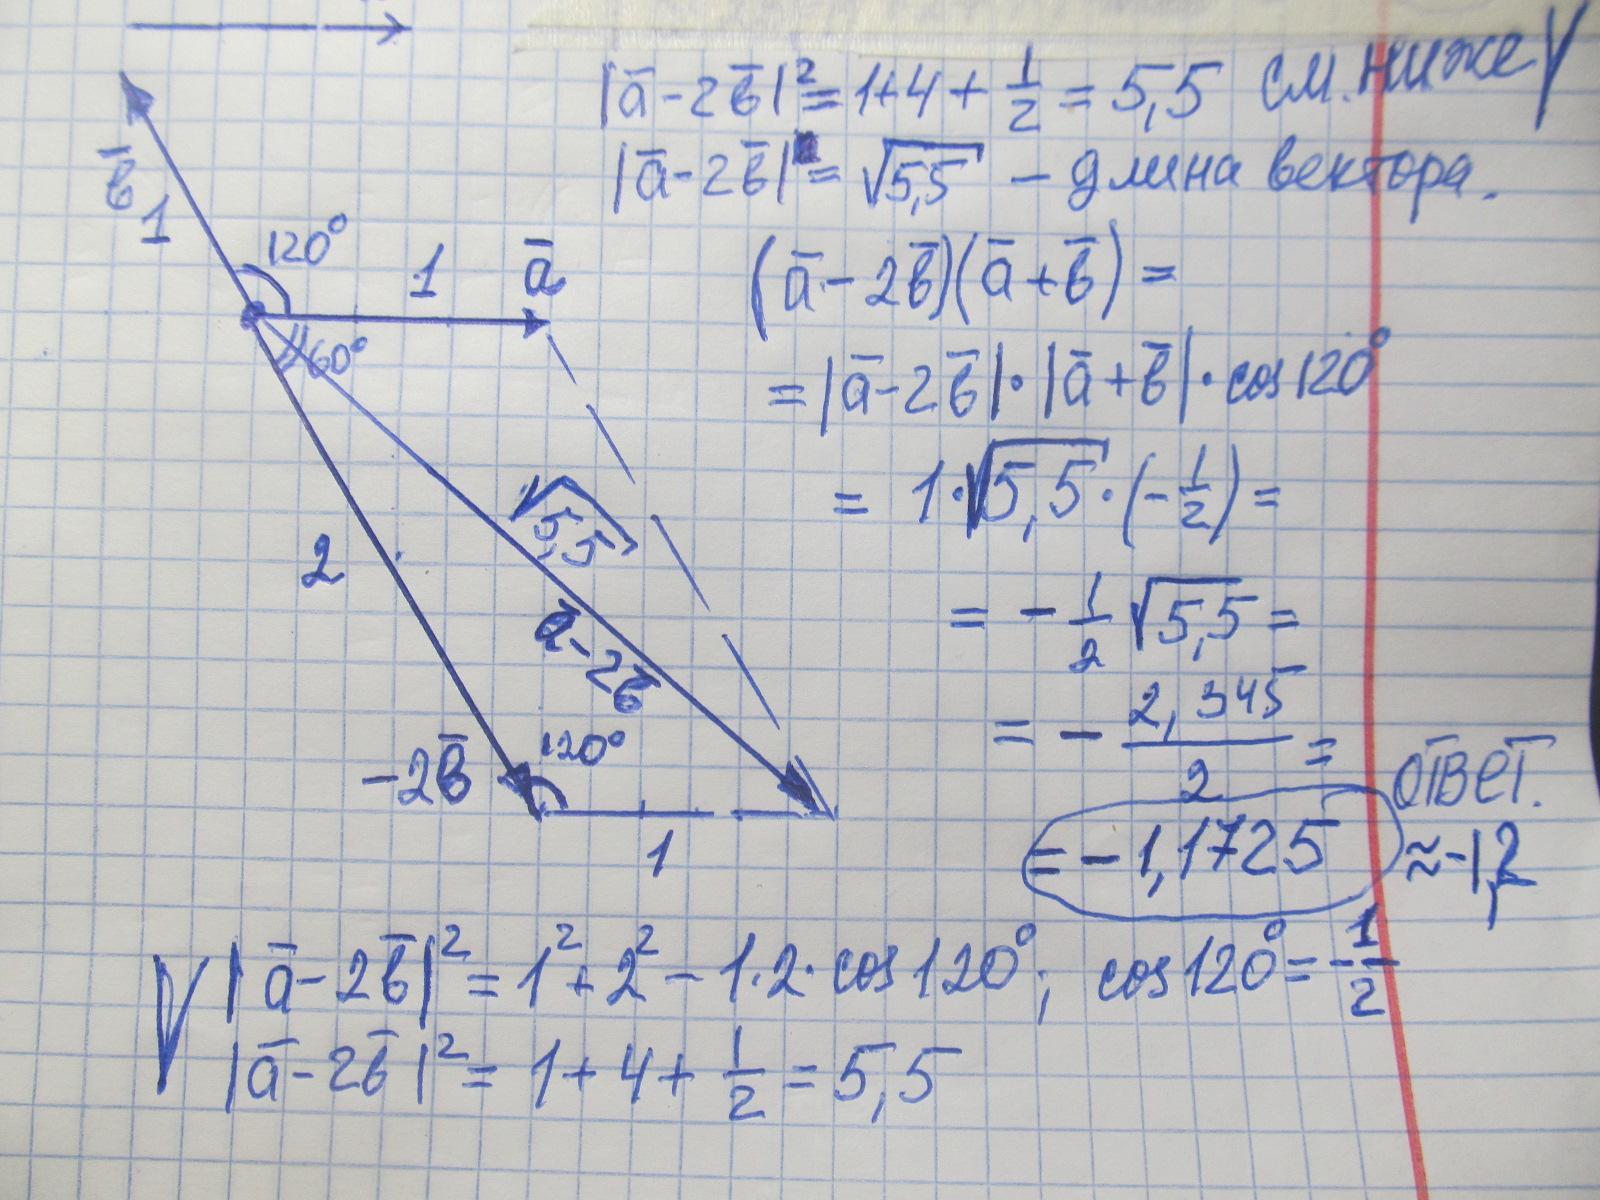 |a̅ - 2b̅|² = 1 + 4 + 1/2 = 5,5 см. ниже V
|a̅ - 2b̅| = √5,5 — длина вектора.
b̅
1
120°
1
a̅
60°
(a̅ - 2b̅)(a̅ + b̅) =
= |a̅ - 2b̅| · |a̅ + b̅| · cos 120°
= 1 · √5,5 · (-1/2) =
√5,5
2
= - 1/2 √5,5 =
a̅ - 2b̅
= - 2,345/2 =
-2b̅
120°
1
ОТВЕТ.
= -1,1725
≈ -1,2
V |a̅ - 2b̅|² = 1² + 2² - 1·2·cos 120°; cos 120° = -1/2
|a̅ - 2b̅|² = 1 + 4 + 1/2 = 5,5